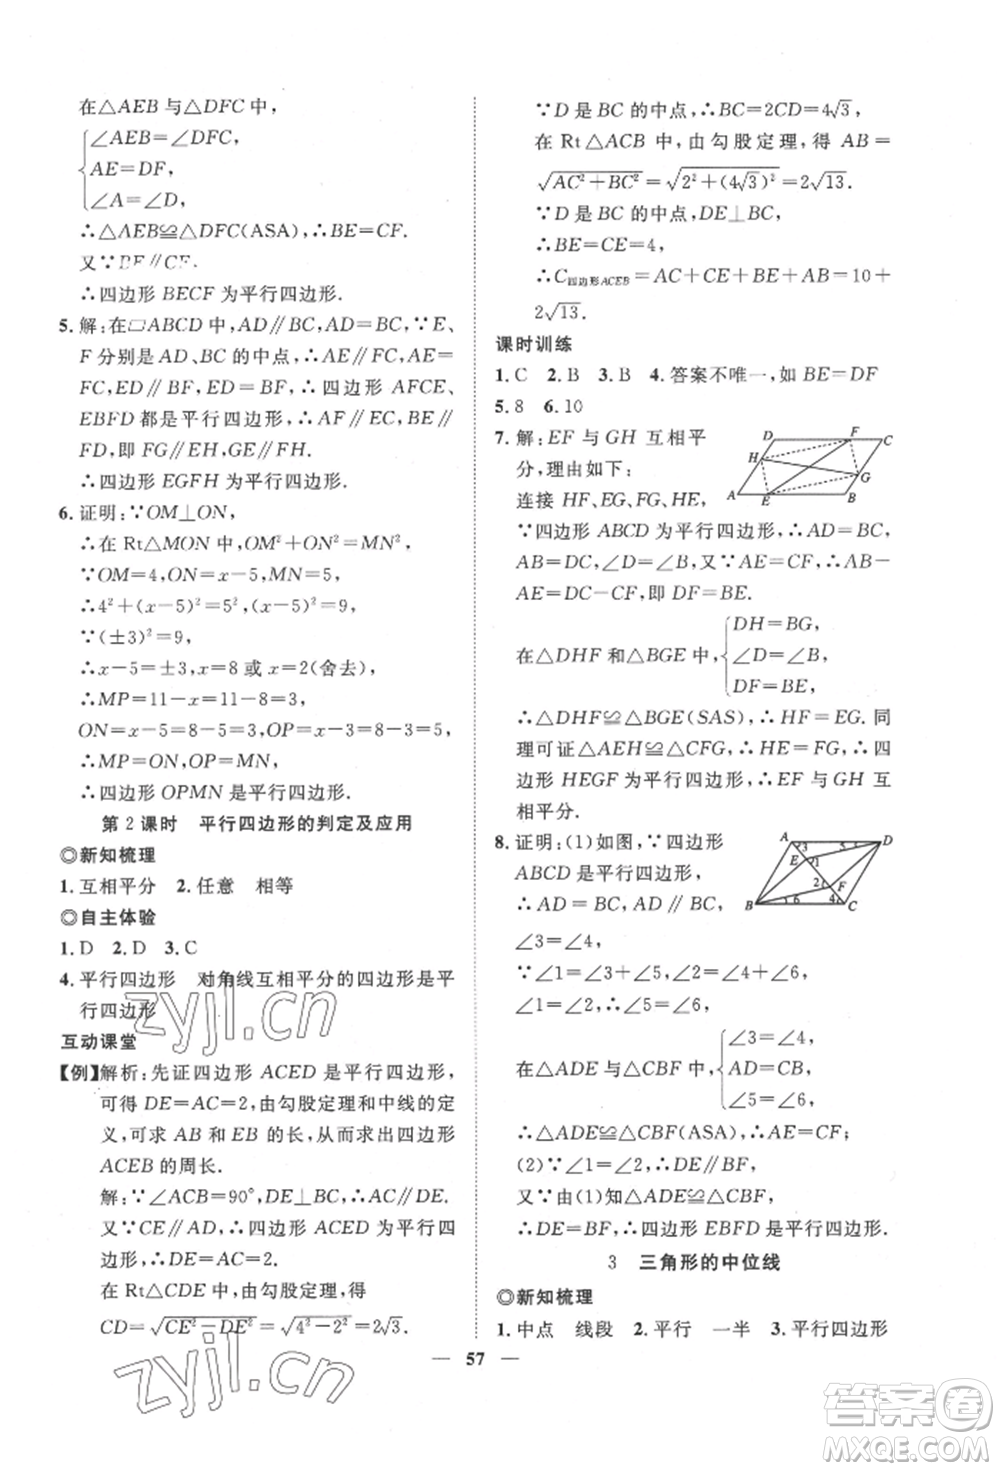 在△AEB 与△DFC 中,
∠AEB=∠DFC,
AE=DF,
∠A=∠D,
∴△AEB≌△DFC(ASA),∴BE=CF.
又∵BE∥CF.
∴四边形 BECF 为平行四边形.
5. 解:在▱ABCD 中,AD∥BC,AD=BC,∵E、
F 分别是 AD、BC 的中点,∴AE∥FC,AE=
FC,ED∥BF,ED=BF,∴四边形 AFCE,
EBFD 都是平行四边形,∴AF∥EC,BE∥
FD,即 FG∥EH,GE∥FH.
∴四边形 EGFH 为平行四边形.
6. 证明:∵OM⊥ON,
∴在 Rt△MON 中,OM²+ON²=MN².
∵OM=4,ON=x-5,MN=5,
∴4²+(x-5)²=5²,(x-5)²=9,
∵(±3)²=9,
∴x-5=±3,x=8 或 x=2(舍去),
∴MP=11-x=11-8=3,
ON=x-5=8-5=3,OP=x-3=8-3=5,
∴MP=ON,OP=MN.
∴四边形 OPMN 是平行四边形.
第 2 课时　平行四边形的判定及应用
◎新知梳理
1. 互相平分　2. 任意　相等
◎自主体验
1. D　2. D　3. C
4. 平行四边形　对角线互相平分的四边形是平
行四边形
互动课堂
【例】解析:先证四边形 ACED 是平行四边形,
可得 DE=AC=2,由勾股定理和中线的定
义,可求 AB 和 EB 的长,从而求出四边形
ACEB 的周长.
解:∵∠ACB=90°,DE⊥BC,∴AC∥DE.
又∵CE∥AD,∴四边形 ACED 为平行四
边形,∴DE=AC=2.
在 Rt△CDE 中,由勾股定理,得
CD=√(CE²-DE²)=√(4²-2²)=2√3.
∵D 是 BC 的中点,∴BC=2CD=4√3,
在 Rt△ACB 中,由勾股定理,得 AB=
√(AC²+BC²)=√(2²+(4√3)²)=2√13.
∵D 是 BC 的中点,DE⊥BC,
∴BE=CE=4,
∴C四边形ACEB=AC+CE+BE+AB=10+
2√13.
课时训练
1. C　2. B　3. B　4. 答案不唯一,如 BE=DF
5. 8　6. 10
7. 解:EF 与 GH 互相平
分,理由如下:
连接 HF、EG、FG、HE,
D F C
H G
A E B
∵四边形 ABCD 为平行四边形,∴AD=BC,
AB=DC,∠D=∠B,又∵AE=CF,∴AB-
AE=DC-CF,即 DF=BE.
DH=BG,
在△DHF 和△BGE 中,∠D=∠B,
DF=BE,
∴△DHF≌△BGE(SAS),∴HF=EG.同
理可证△AEH≌△CFG,∴HE=FG,∴四
边形 HEGF 为平行四边形,∴EF 与 GH 互
相平分.
8. 证明:(1)如图,∵四边形
ABCD 是平行四边形,
∴AD=BC,AD∥BC,
A 3 5 D
E 1
2 F
B 6 4 C
∠3=∠4,
∵∠1=∠3+∠5,∠2=∠4+∠6,
∠1=∠2,∴∠5=∠6,
∠3=∠4,
在△ADE 与△CBF 中,AD=CB,
∠5=∠6,
∴△ADE≌△CBF(ASA),∴AE=CF;
(2)∵∠1=∠2,∴DE∥BF,
又∵由(1)知△ADE≌△CBF,
∴DE=BF,∴四边形 EBFD 是平行四边形.
3　三角形的中位线
◎新知梳理
1. 中点　线段　2. 平行　一半　3. 平行四边形
— 57 —
zyjl.cn
zyjl.cn
答案卷
MXQE.COM